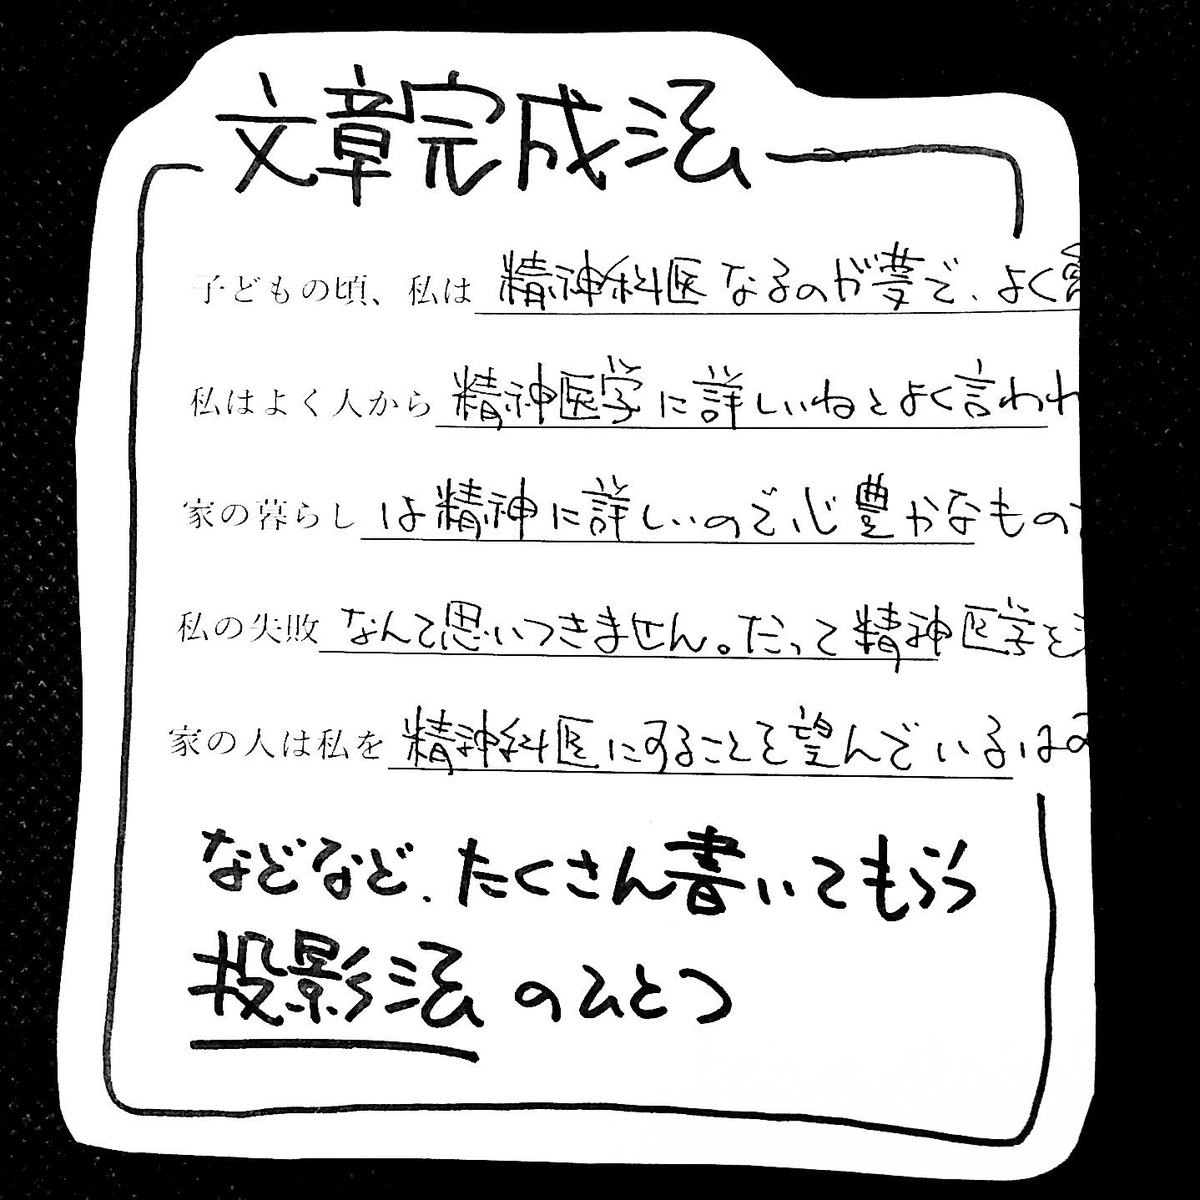 文章完成法
子どもの頃、私は 精神科医なるのが夢で、よく
私はよく人から 精神医学に詳しいねとよく言われ
家の暮らし は精神に詳しいので心豊かなもの
私の失敗 なんて思いつきません。だって精神医学を
家の人は私を 精神科医にすることを望んでいるは
などなど、たくさん書いてもらう
投影法のひとつ